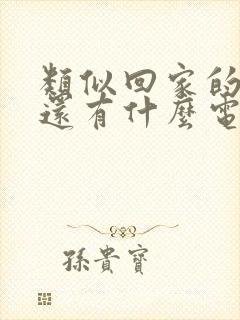 類似回家的
還有什麼電
孫貴寶